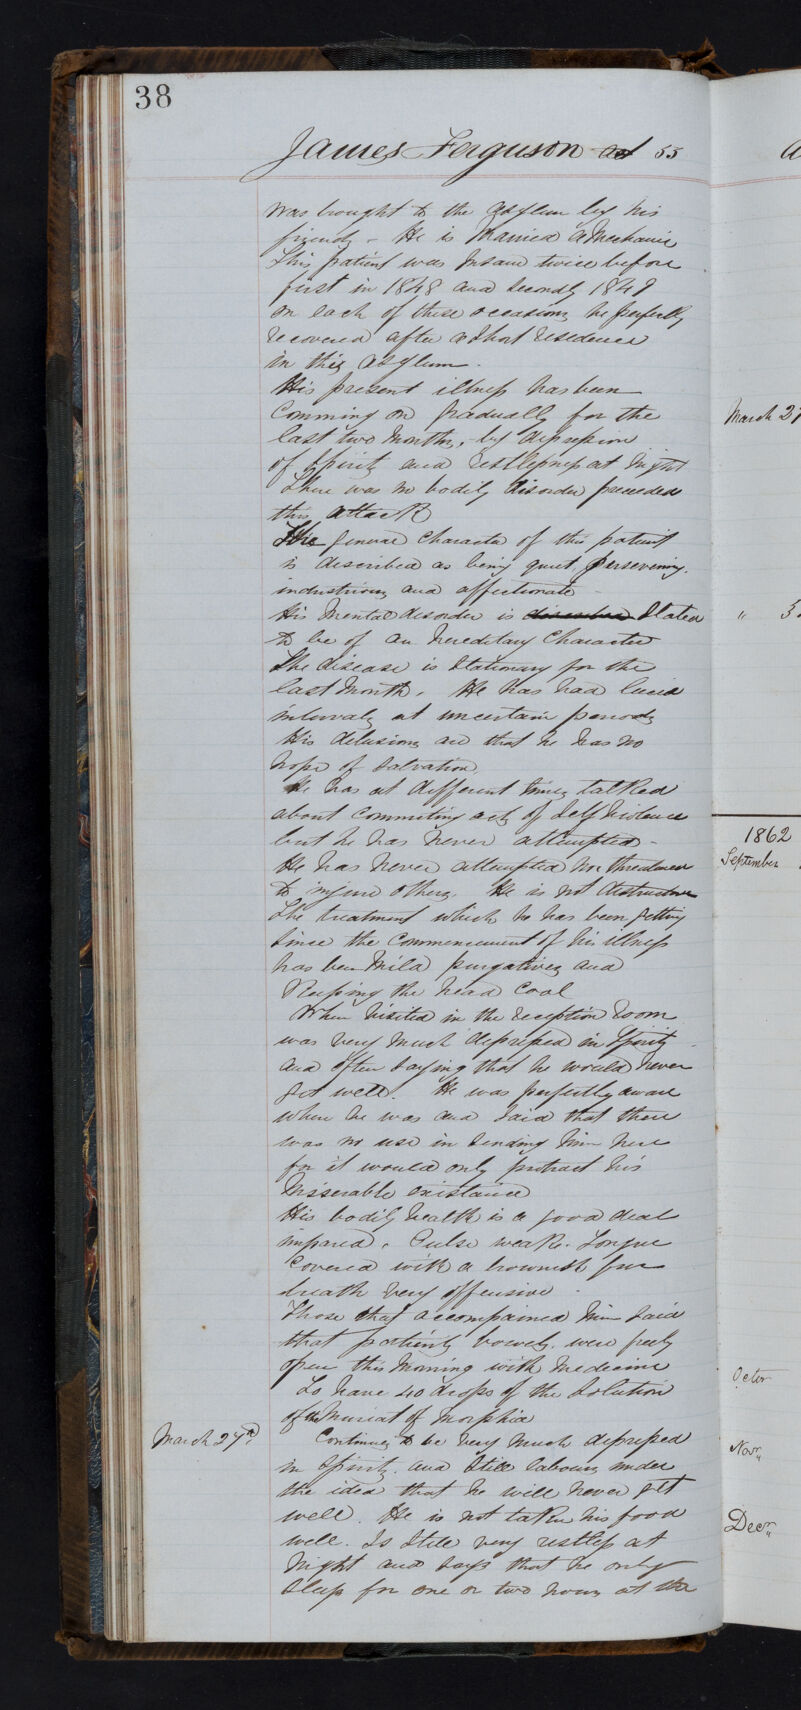 38
James Ferguson aet 55
was brought to the asylum by his
friends - He is Married a Mechanic
This patient was Insane twice before
first in 1848 and Secondly 1849
on each of these occasions he perfectly
recovered after a Short residence
in this asylum.
His present illness has been
Comming on gradually for the
last two Months, by depression
of Spirits and restlessness at Night
There was no bodily disorder preceeded
this attack
The general Character of this patient
is described as being quiet, persevering,
industrious and affectionate
His Mental disorder is described Stated
to be of an hereditary Character
The disease is Stationary for the
last Month. He has had lucid
intervals at uncertain periods
His delusions are that he has no
hope of Salvation.
He has at different times talked
about Commiting acts of Self Violence
but he has never attempted -
He has never attempted nor threatened
to injure others. He is not destructive
The treatment which he has been getting
Since the Commencement of his illness
has been Mild purgatives and
Keeping the head Cool
When Visited in the reception room
was very much depressed in Spirits
and often Saying that he would never
get well. He was perfectly aware
where he was and Said that there
was no use in Sending him here
for it would only protract his
Misserable existance
His bodily health is a good deal
impared. Pulse weak. Tongue
Covered with a brownish fur
breath very offensive.
Those that accompained him Said
that patients bowels were freely
open this Morning with Medicine
To have 40 drops of the Solution
of the Muriat of Morphia
March 27th.
Continues to be very much depressed
in Spirits and Still labours under
the idea that he will never get
well. He is not taken his food
well. Is Still very restless at
Night and Says that he only
Sleeps for one or two hours at the
March 2
"
1862
September
Octor
Novr
Decr